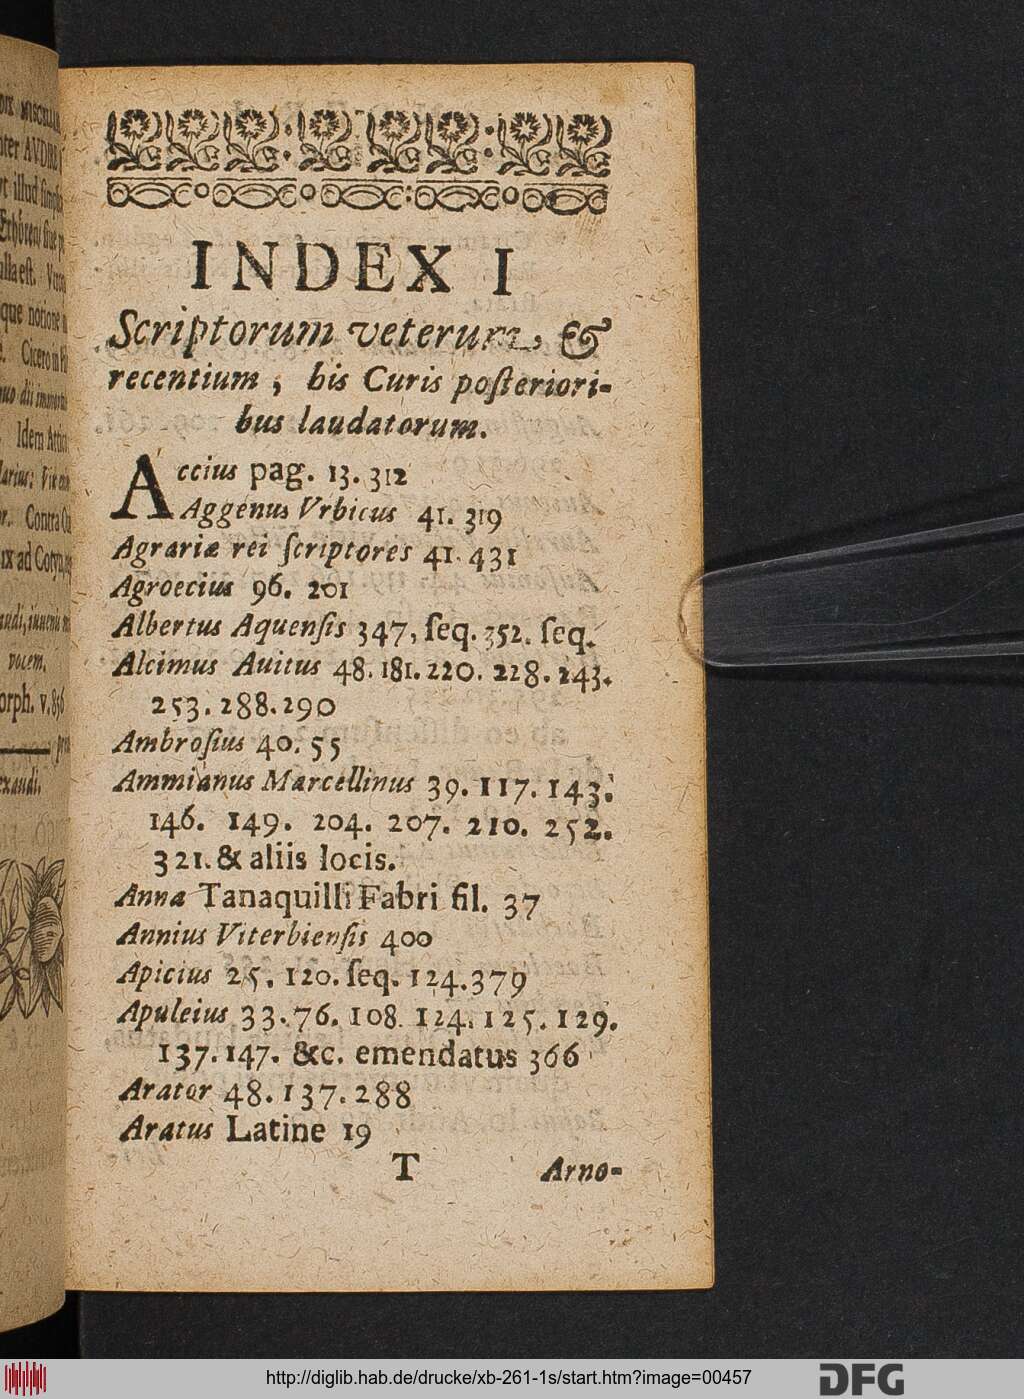 DIX MISCELLA
AVDIRE
vt illud
ulla est.
que notione
Cicero in
Idem
Contra
ix ad Cotyn
vocem.
orph. v. 856
exaudi.
INDEX I
Scriptorum veterum, &
recentium, his Curis poſteriori-
bus laudatorum.
Accius pag. 13. 312
Aggenus Vrbicus 41. 319
Agrariæ rei ſcriptores 41. 431
Agroecius 96. 201
Albertus Aquenſis 347, ſeq. 352. ſeq.
Alcimus Auitus 48. 181. 220. 228. 243.
253. 288. 290
Ambroſius 40. 55
Ammianus Marcellinus 39. 117. 143.
146. 149. 204. 207. 210. 252.
321. & aliis locis.
Anna Tanaquilli Fabri fil. 37
Annius Viterbienſis 400
Apicius 25. 120. ſeq. 124. 379
Apuleius 33. 76. 108. 124. 125. 129.
137. 147. &c. emendatus 366
Arator 48. 137. 288
Aratus Latine 19
T Arno-
http://diglib.hab.de/drucke/xb-261-1s/start.htm?image=00457
DFG